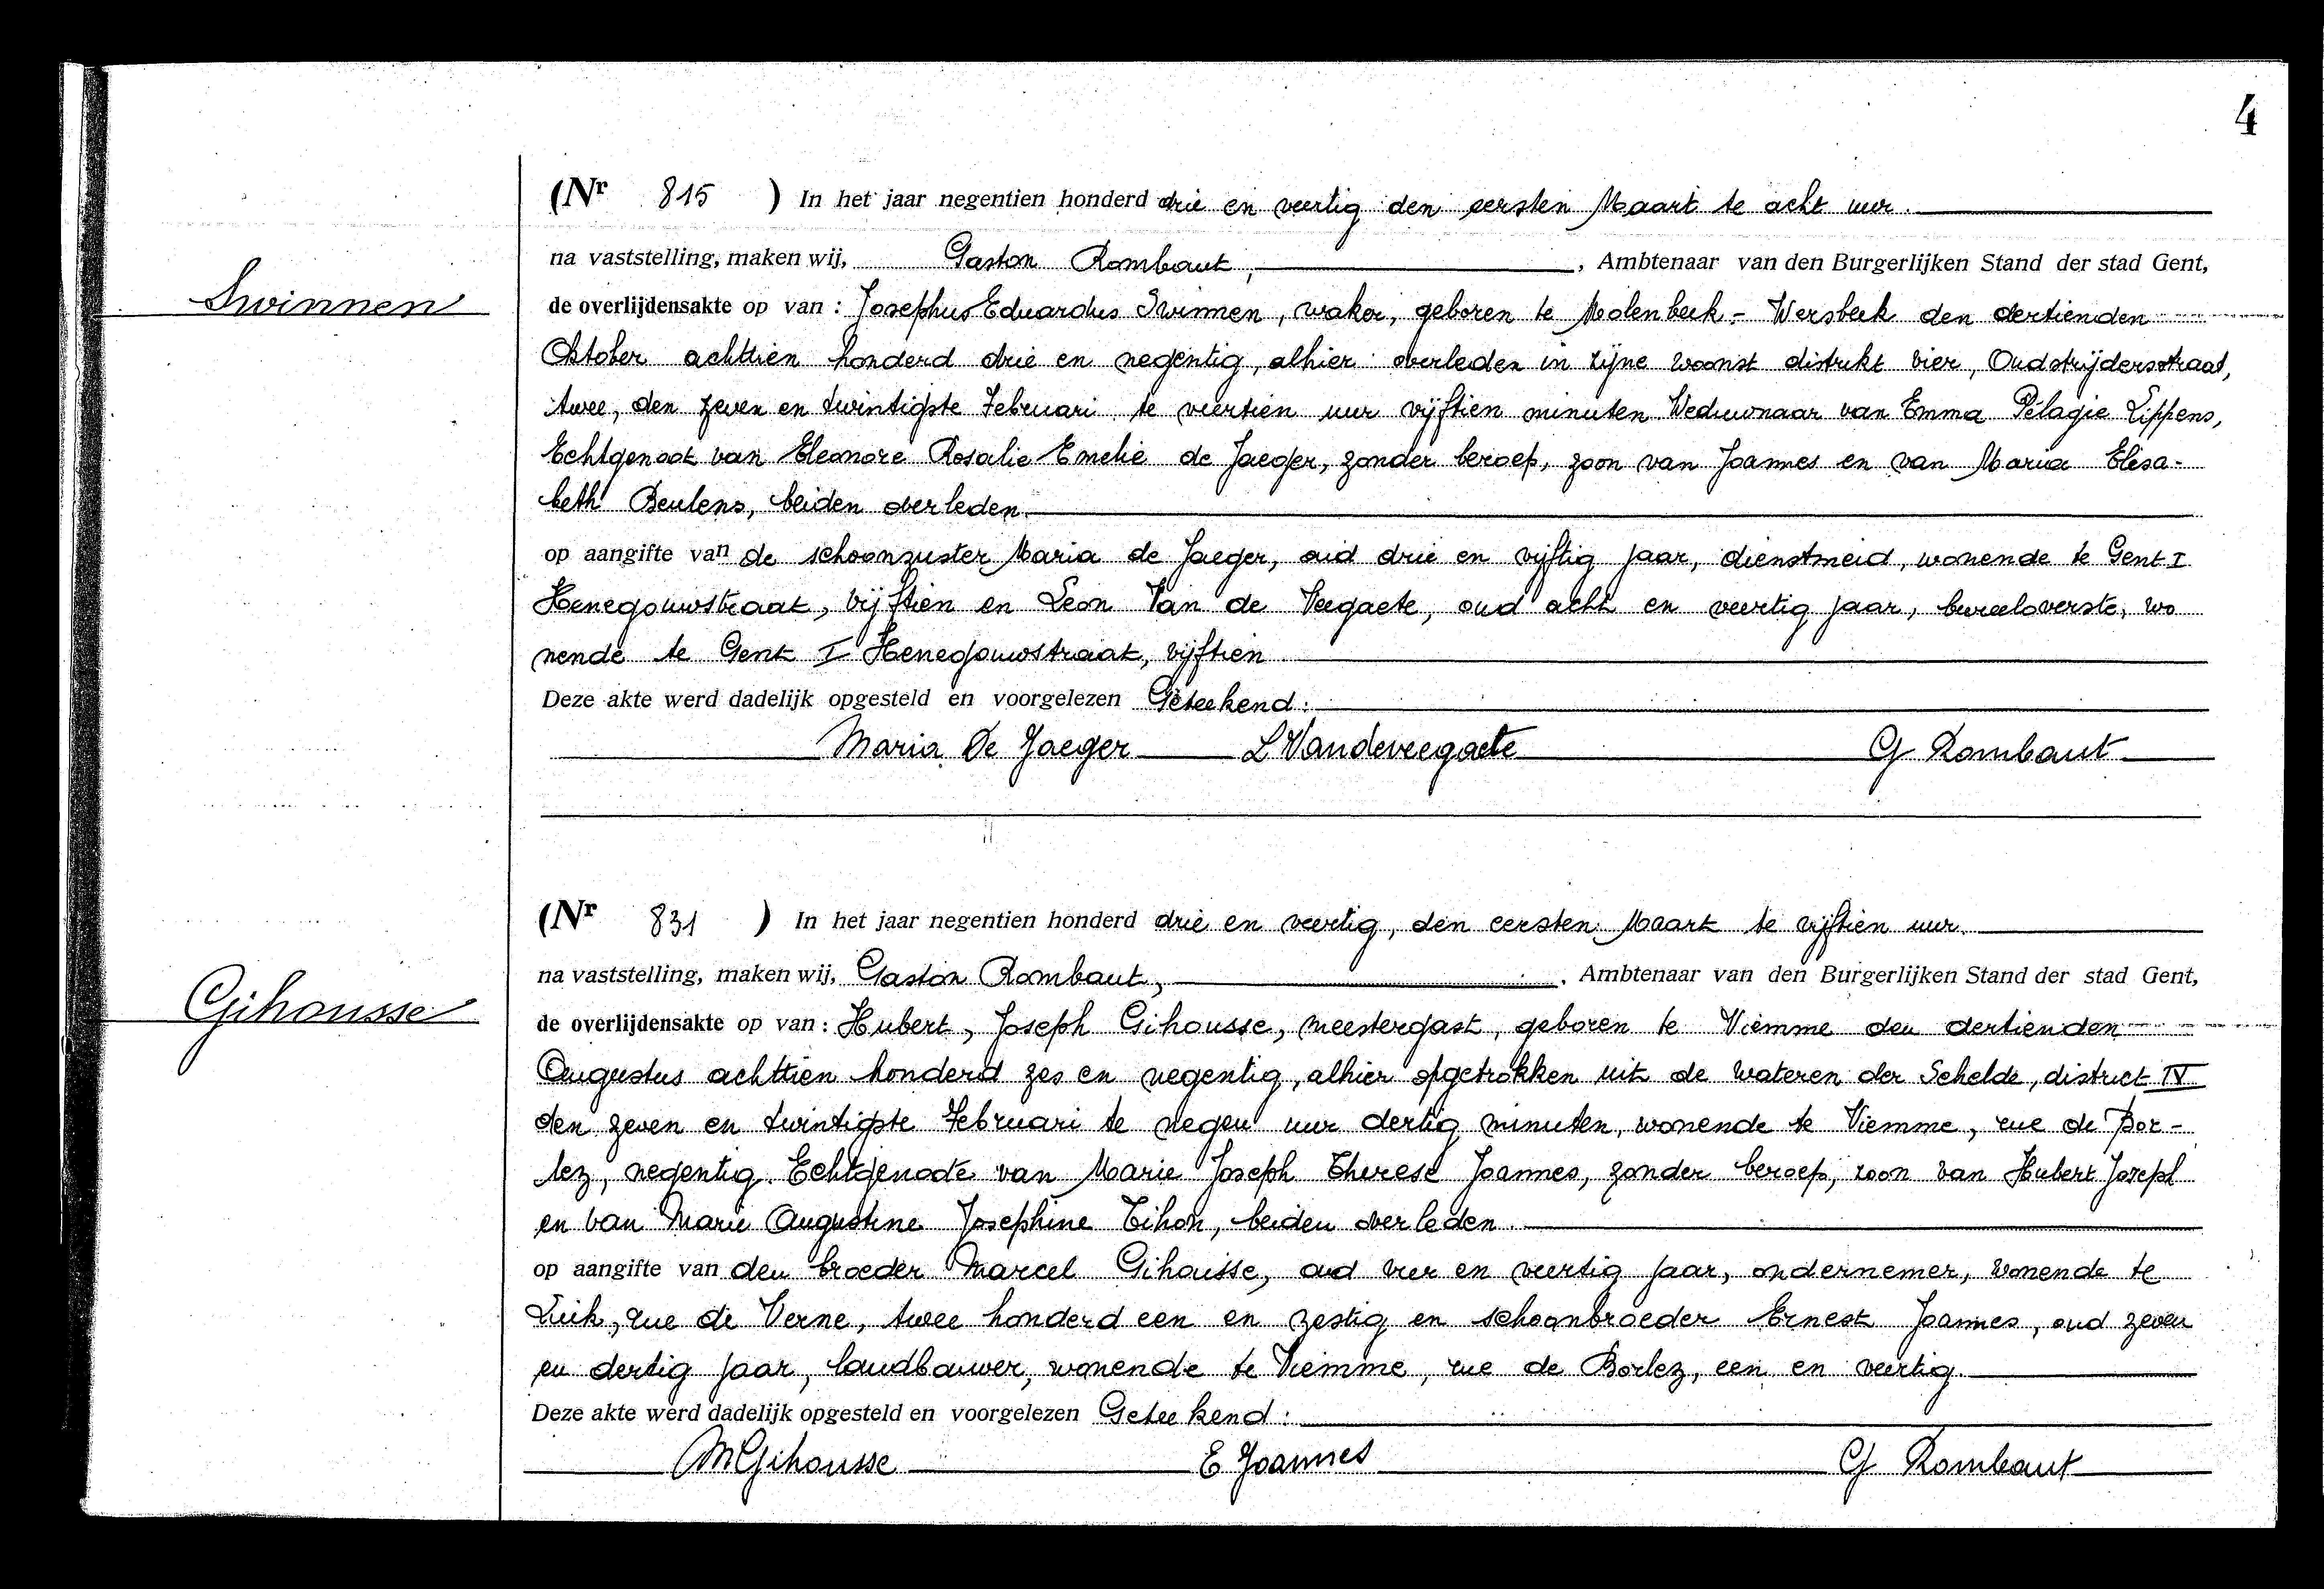 4
(Nr 815 ) In het jaar negentien honderd drie en veertig den eersten Maart te acht uur.
na vaststelling, maken wij, Gaston Rombaut, , Ambtenaar van den Burgerlijken Stand der stad Gent,
Swinnen
de overlijdensakte op van : Josephus Eduardus Swinnen, waker, geboren te Molenbeek - Wersbeek den dertienden
Oktober achttien honderd drie en negentig, alhier overleden in zijne woonst distrikt vier, Oudstrijdersstraat,
twee, den zeven en twintigste Februari te veertien uur vijftien minuten. Weduwnaar van Emma Pélagie Lippens,
Echtgenoot van Eleonore Rosalie Emelie de Jaeger, zonder beroep, zoon van Joannes en van Maria Elisa-
beth Beulens, beiden overleden.
op aangifte van de schoonzuster Maria de Jaeger, oud drie en vijftig jaar, dienstmeid, wonende te Gent I
Henegouwstraat, vijftien en Leon Van de Veegaete, oud acht en veertig jaar, bureeloverste, wo
nende te Gent I Henegouwstraat, vijftien
Deze akte werd dadelijk opgesteld en voorgelezen Geteekend :
Maria De Jaeger L Vandeveegaete G Rombaut
(Nr 831 ) In het jaar negentien honderd drie en veertig, den eersten Maart te vijftien uur.
na vaststelling, maken wij, Gaston Rombaut, , Ambtenaar van den Burgerlijken Stand der stad Gent,
Gihousse
de overlijdensakte op van : Hubert, Joseph Gihousse, meestergast, geboren te Viemme den dertienden
Augustus achttien honderd zes en negentig, alhier opgetrokken uit de wateren der Schelde, district IV
den zeven en twintigste Februari te negen uur dertig minuten, wonende te Viemme, rue de Bor-
lez, negentig. Echtgenoote van Marie Joseph Therese Joannes, zonder beroep, zoon van Hubert Joseph
en van Marie Augustine Josephine Tihon, beiden overleden.
op aangifte van den broeder Marcel Gihousse, oud vier en veertig jaar, ondernemer, wonende te
Luik, rue de Verne, twee honderd een en zestig en schoonbroeder Ernest Joannes, oud zeven
en dertig jaar, landbouwer, wonende te Viemme, rue de Borlez, een en veertig.
Deze akte werd dadelijk opgesteld en voorgelezen Geteekend :
M Gihousse E Joannes G Rombaut